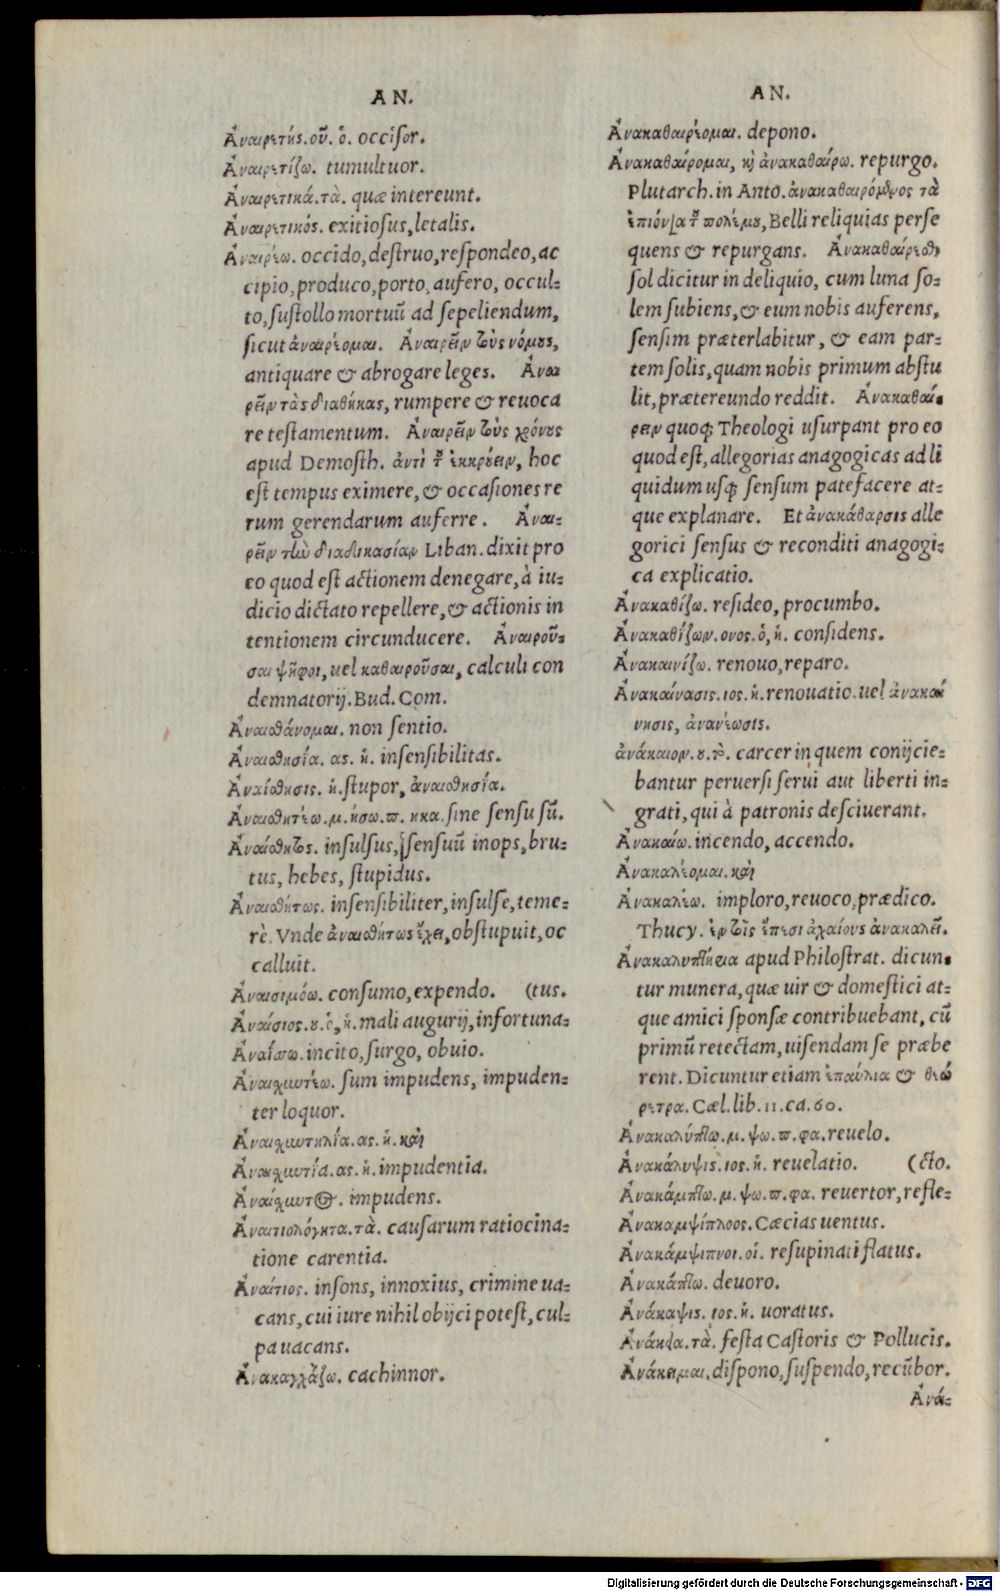 AN.
Ἀναιρετής. οῦ. ὁ. occiſor.
Ἀναιρετίζω. tumultuor.
Ἀναιρετικά. τὰ. quæ intereunt.
Ἀναιρετικός. exitioſus, letalis.
Ἀναιρέω. occido, deſtruo, reſpondeo, ac
cipio, produco, porto, aufero, occul-
to, ſuſtollo mortuũ ad ſepeliendum,
ſicut ἀναιρέομαι. Ἀναιρεῖν τοὺς νόμους,
antiquare & abrogare leges. Ἀναι
ρεῖν τὰς διαθήκας, rumpere & reuoca
re teſtamentum. Ἀναιρεῖν τοὺς χρόνους
apud Demoſth. ἀντὶ τοῦ ἐκκρούειν, hoc
eſt tempus eximere, & occaſiones re
rum gerendarum auferre. Ἀναι-
ρεῖν τὴν διαδικασίαν Liban. dixit pro
eo quod eſt actionem denegare, à iu-
dicio dictato repellere, & actionis in
tentionem circunducere. Ἀναιροῦ-
σαι ψῆφοι, uel καθαιροῦσαι, calculi con
demnatorij. Bud. Com.
Ἀναισθάνομαι. non ſentio.
Ἀναισθησία. ας. ἡ. inſenſibilitas.
Ἀναίσθησις. ἡ. ſtupor, ἀναισθησία.
Ἀναισθητέω. μ. ήσω. π. ηκα. ſine ſenſu ſũ.
Ἀναίσθητος. inſulſus, ſenſuũ inops, bru-
tus, hebes, ſtupidus.
Ἀναισθήτως. inſenſibiliter, inſulſe, teme-
rè. Vnde ἀναισθήτως ἔχει, obſtupuit, oc
calluit.
Ἀναισιμόω. conſumo, expendo. (tus.
Ἀναίσιος. ου. ὁ, ἡ. mali augurij, infortuna-
Ἀναΐσσω. incito, ſurgo, obuio.
Ἀναισχυντέω. ſum impudens, impuden-
ter loquor.
Ἀναισχυντηλία. ας. ἡ. καὶ
Ἀναισχυντία. ας. ἡ. impudentia.
Ἀναίσχυντος. impudens.
Ἀναιτιολόγητα. τὰ. cauſarum ratiocina-
tione carentia.
Ἀναίτιος. inſons, innoxius, crimine ua-
cans, cui iure nihil obijci poteſt, cul-
pa uacans.
Ἀνακαγχάζω. cachinnor.
AN.
Ἀνακαθαιρέομαι. depono.
Ἀνακαθαίρομαι, καὶ ἀνακαθαίρω. repurgo.
Plutarch. in Anto. ἀνακαθαιρόμενος τὰ
ἐπιόντα τοῦ πολέμου, Belli reliquias perſe
quens & repurgans. Ἀνακαθαίρεσθαι
ſol dicitur in deliquio, cum luna ſo-
lem ſubiens, & eum nobis auferens,
ſenſim præterlabitur, & eam par-
tem ſolis, quam nobis primum abſtu
lit, prætereundo reddit. Ἀνακαθαί-
ρειν quoq; Theologi uſurpant pro eo
quod eſt, allegorias anagogicas ad li
quidum uſq; ſenſum patefacere at-
que explanare. Et ἀνακάθαρσις alle
gorici ſenſus & reconditi anagogi-
ca explicatio.
Ἀνακαθίζω. reſideo, procumbo.
Ἀνακαθίζων. ονος. ὁ, ἡ. conſidens.
Ἀνακαινίζω. renouo, reparo.
Ἀνακαίνασις. ιος. ἡ. renouatio. uel ἀνακαί
νησις, ἀνανέωσις.
ἀνάκαιον. ου. τὸ. carcer in quem conijcie-
bantur peruerſi ſerui aut liberti in-
grati, qui à patronis deſciuerant.
Ἀνακαίω. incendo, accendo.
Ἀνακαλέομαι. καὶ
Ἀνακαλέω. imploro, reuoco, prædico.
Thucy. ἐν τοῖς ἔπεσι ἀχαίους ἀνακαλεῖ.
Ἀνακαλυπτήρια apud Philoſtrat. dicun-
tur munera, quæ uir & domeſtici at-
que amici ſponſæ contribuebant, cũ
primũ retectam, uiſendam ſe præbe
rent. Dicuntur etiam ἐπαύλια & θεώ
ρετρα. Cæl. lib. 11. ca. 60.
Ἀνακαλύπτω. μ. ψω. π. φα. reuelo.
Ἀνακάλυψις. ιος. ἡ. reuelatio. (cto.
Ἀνακάμπτω. μ. ψω. π. φα. reuertor, refle-
Ἀνακαμψίπλοος. Cæcias uentus.
Ἀνακάμψιπνοι. οἱ. reſupinati flatus.
Ἀνακάπτω. deuoro.
Ἀνάκαψις. ιος. ἡ. uoratus.
Ἀνάκεια. τὰ. feſta Caſtoris & Pollucis.
Ἀνάκειμαι. diſpono, ſuſpendo, recũbor.
Ἀνά-
Digitalisierung gefördert durch die Deutsche Forschungsgemeinschaft - DFG